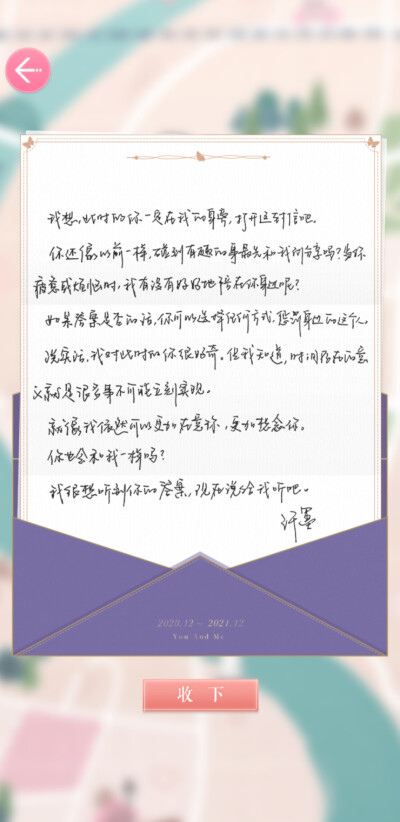 我想，此时的你一定在我的身旁，打开这封信吧。
你还像以前一样，碰到有趣的事最先和我分享吗？当你
疲惫或烦恼时，我有没有好好地陪在你身边呢？
如果答案是否的话，你可以选择任何方式，惩罚身边的这个人。
说实话，我对此时的你很好奇。但我知道，时间存在的意
义就是很多事不可能立刻实现。
就像我依然可以更加在意你，更加想念你。
你也会和我一样吗？
我很想听到你的答案，现在说给我听吧。
许墨
2020.12 ~ 2021.12
You And Me
收下